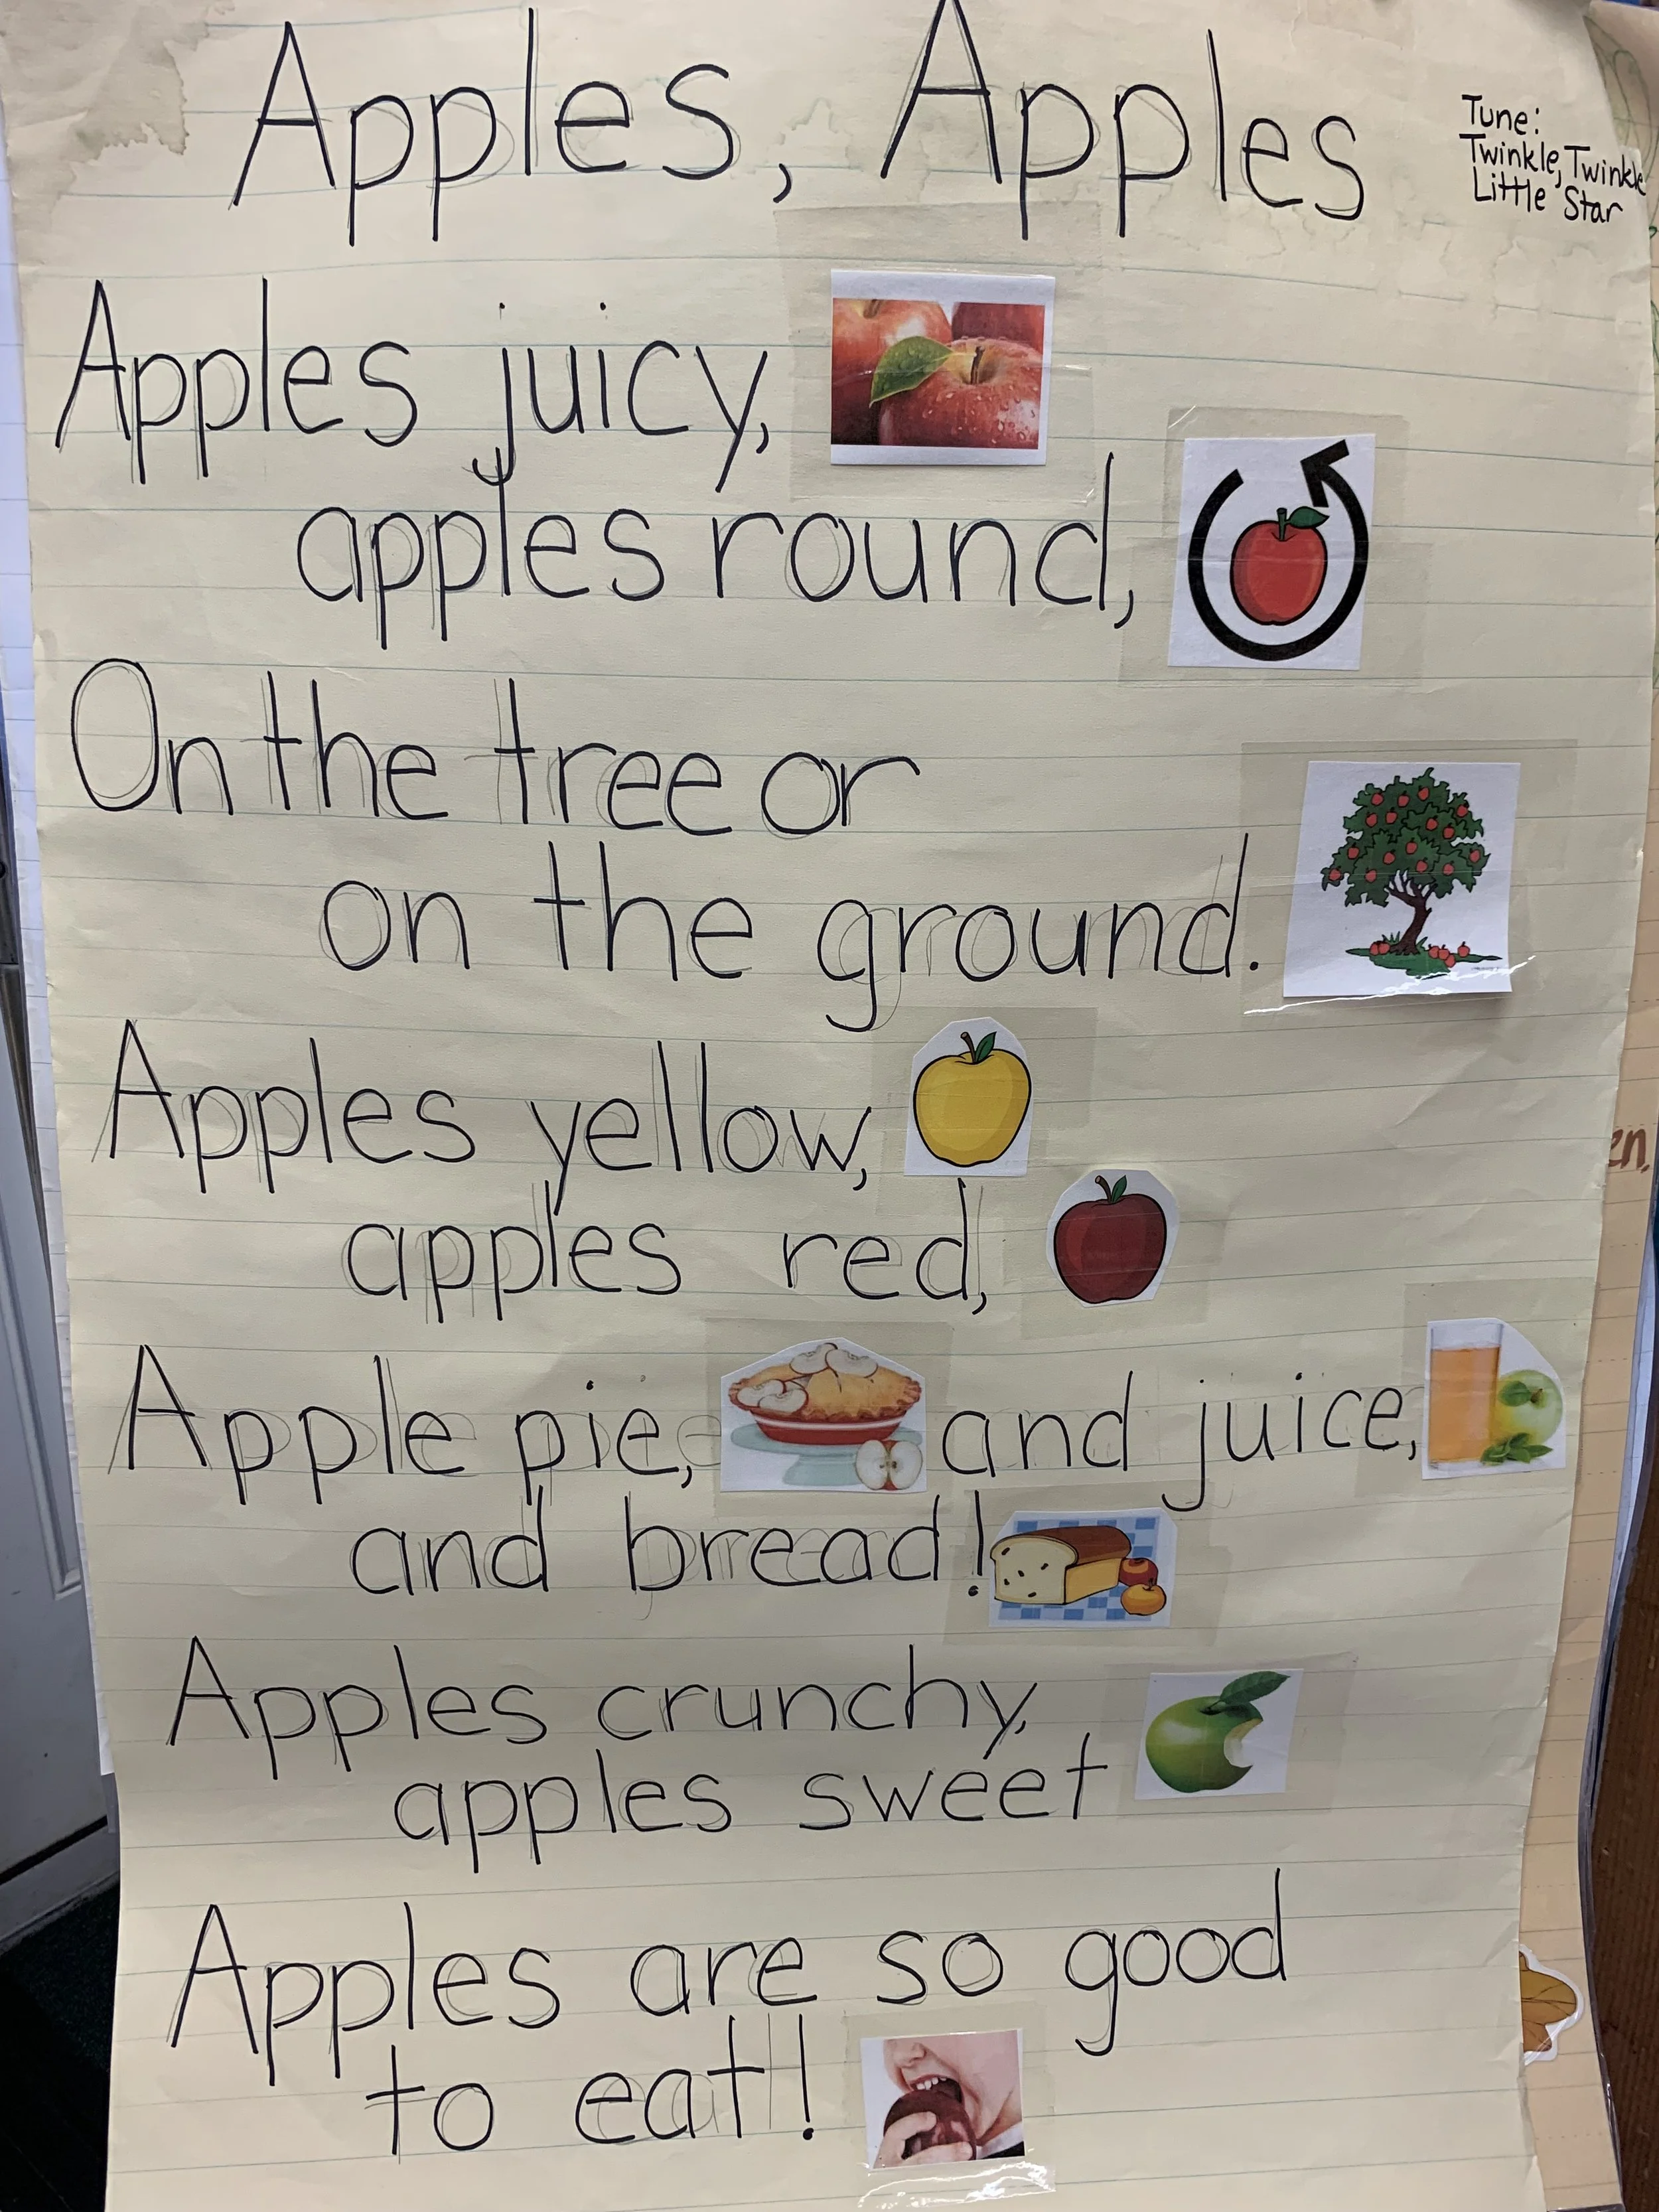 Apples, Apples
Tune:
Twinkle, Twinkle
Little Star
Apples juicy,
apples round,
On the tree or
on the ground.
Apples yellow,
apples red,
Apple pie, and juice,
and bread!
Apples crunchy,
apples sweet
Apples are so good
to eat!
en.